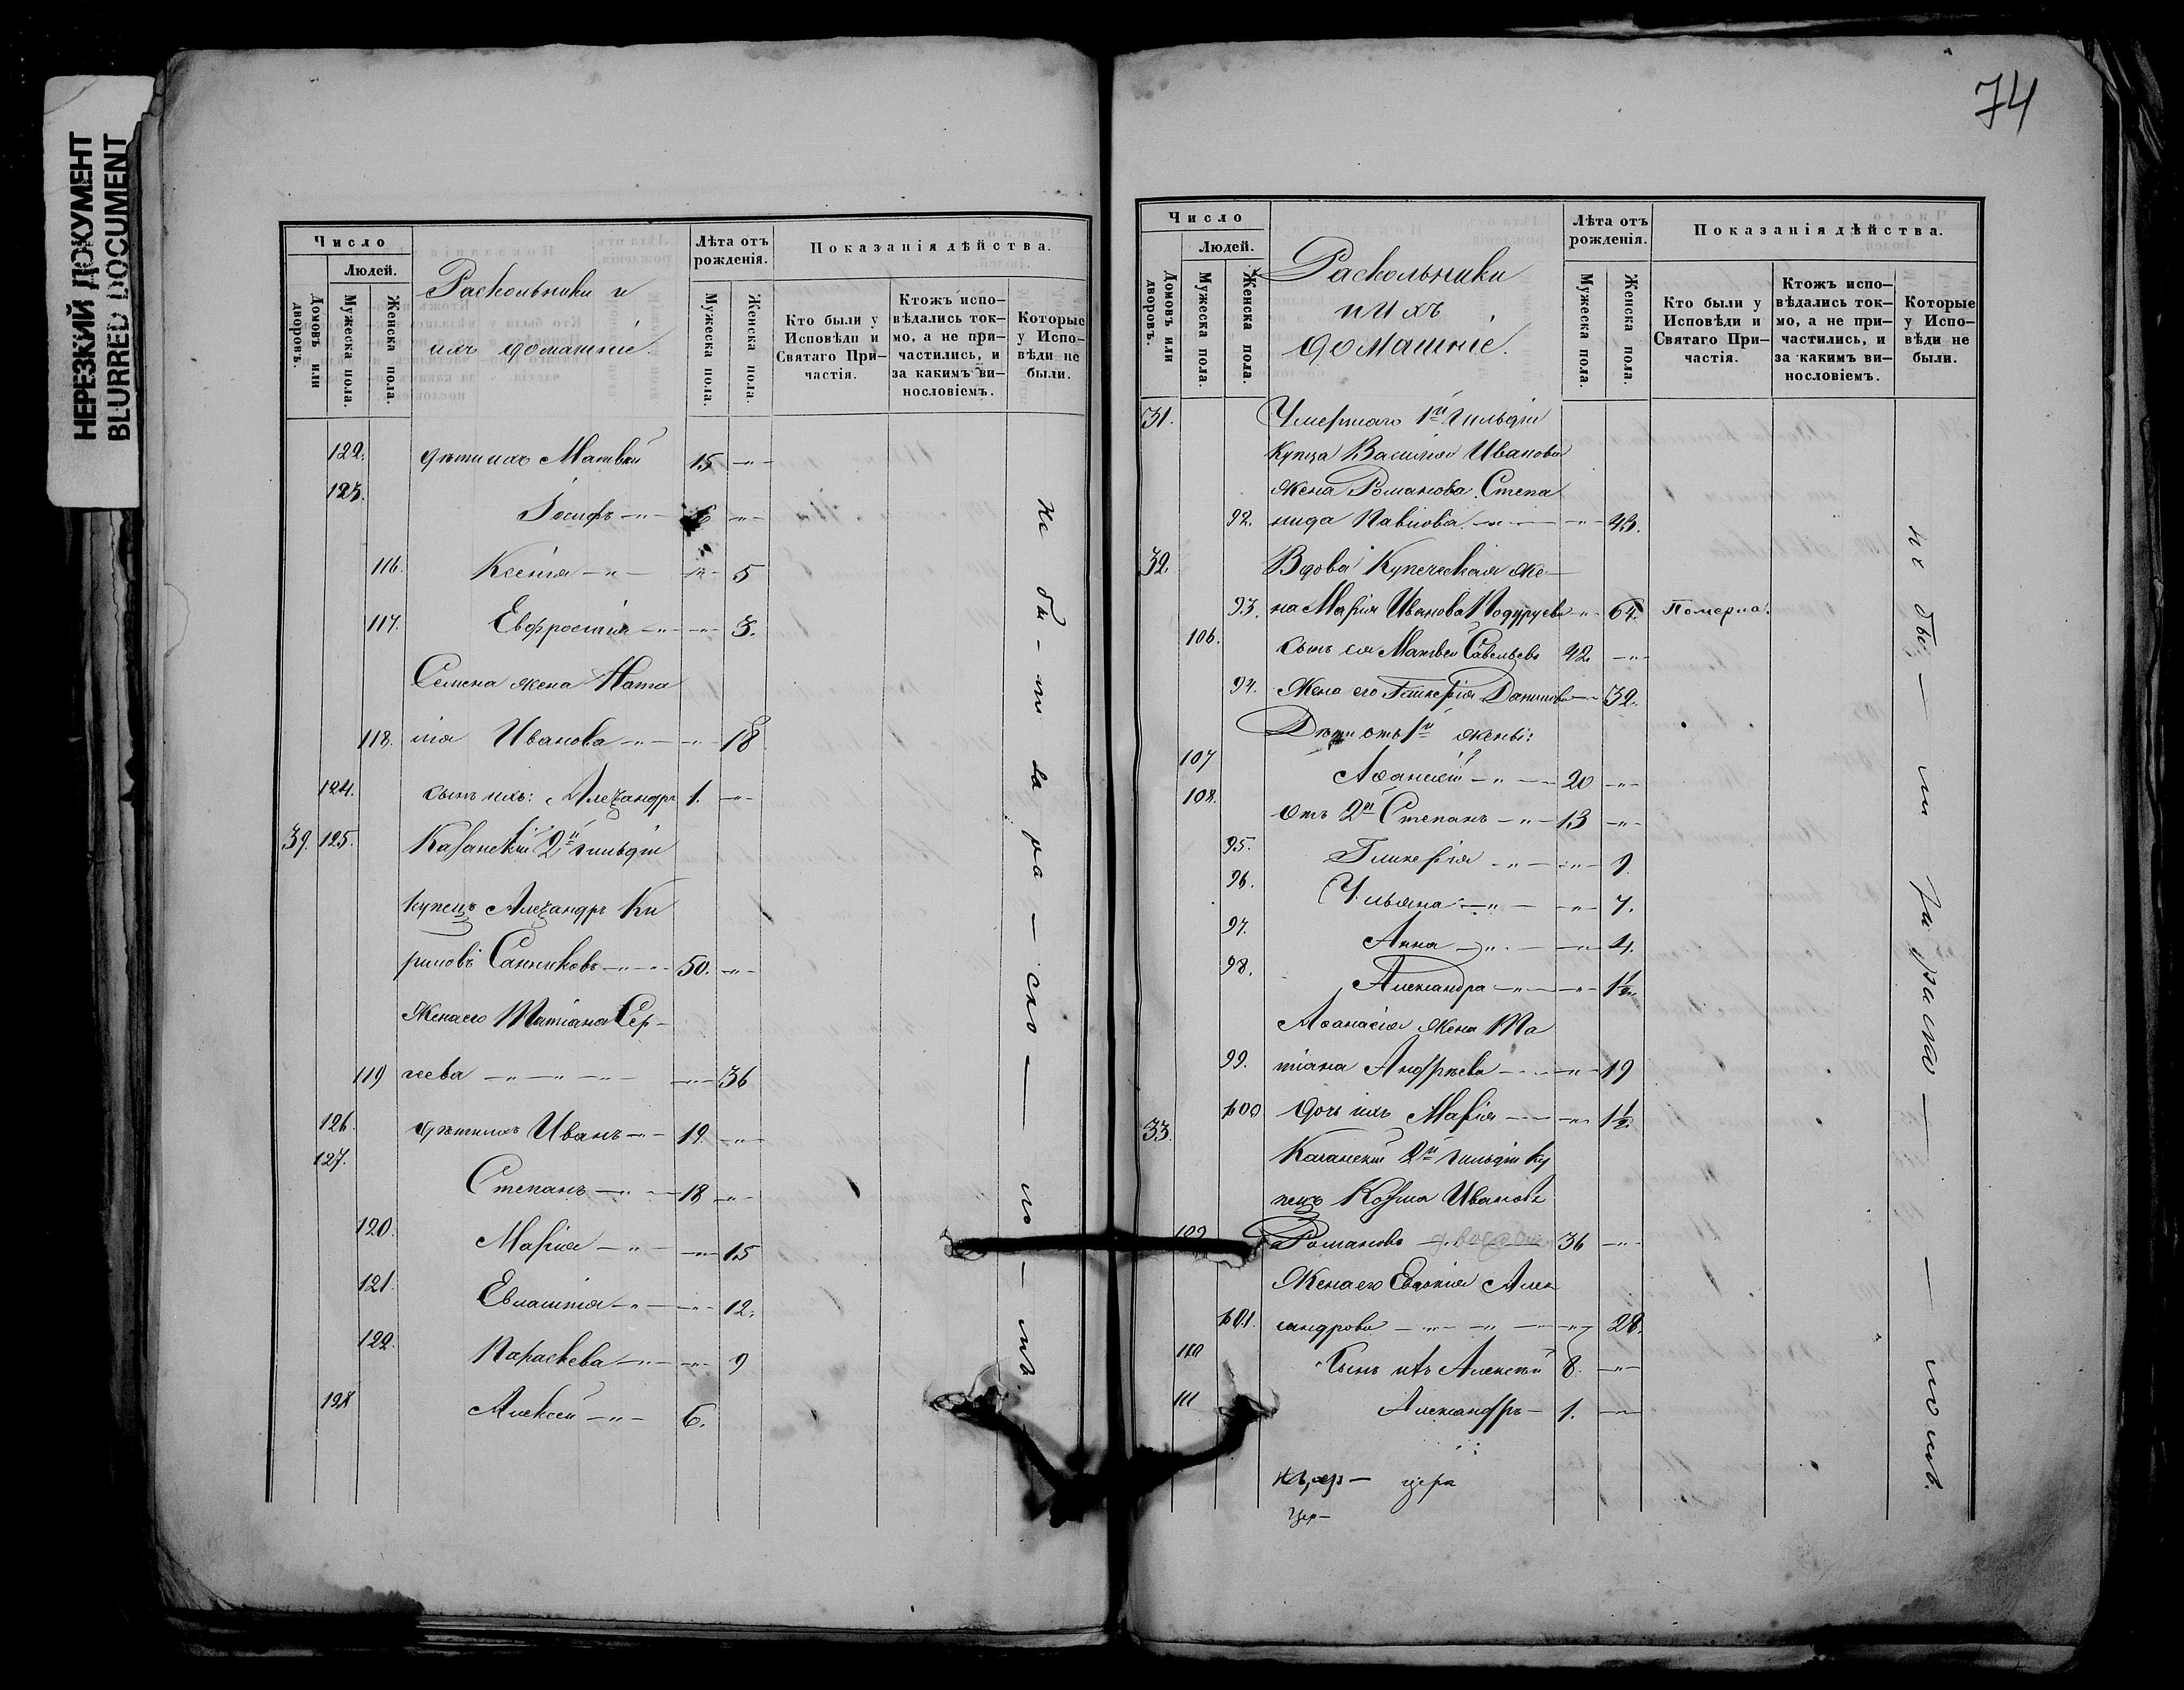 НЕРЕЗКИЙ ДОКУМЕНТ
BLURRED DOCUMENT
Число
Людей.
Домовъ или дворовъ.
Мужеска пола.
Женска пола.
Раскольники и
ихъ домашніе.
Лѣта отъ рожденія.
Мужеска пола.
Женска пола.
Показанія дѣйства.
Кто были у Исповѣди и Святаго При-частія.
Ктожъ испо-вѣдались ток-мо, а не при-частились, и за какимъ ви-нословіемъ.
Которые у Испо-вѣди не были.
122. дѣти ихъ Матвѣй 15 —"—
123. Іосифъ —"— 6 —"—
116. Ксенія —"— —"— 5
117. Евфросинія —"— —"— 3.
Семена жена Ната
118. лія Иванова —"— —"— 18
124. сынъ ихъ: Александръ 1. —"—
39. 125. Казанскій 2й гильдіи
купецъ Александръ Ки
риловъ Санниковъ —"— 50. —"—
Жена его Татіана Сер-
119 геева —"—"—"— —"— 36
126. дѣти ихъ Иванъ —"— 19. —"—
127. Степанъ —"— 18 —"—
120. Марія —"— —"— 15
121. Евлампія —"— —"— 12.
122. Параскева —"— —"— 9
128 Алексѣй —"— 6.
не бы-ли за ра-ско-ло-мъ.
74
Число
Людей.
Домовъ или дворовъ.
Мужеска пола.
Женска пола.
Раскольники
и ихъ
домашніе.
Лѣта отъ рожденія.
Мужеска пола.
Женска пола.
Показанія дѣйства.
Кто были у Исповѣди и Святаго При-частія.
Ктожъ испо-вѣдались ток-мо, а не при-частились, и за какимъ ви-нословіемъ.
Которые у Испо-вѣди не были.
31. Умершаго 1й гильдіи
купца Василія Иванова
жена Романова Степа
92. нида Павлова —"— —"— 43.
32. Вдова Купеческая же-
93. на Марія Иванова Подуруева —"— 64. Померла.
106. сынъ ея Матвей Савельевъ 42 —"—
94. Жена его Гликерія Данилова —"— 32.
Дѣти отъ 1й жены:
107 Аѳанасій —"— 20 —"—
108. Отъ 2й Степанъ —"— 13 —"—
95. Гликерія —"— —"— 9
96. Ульяна —"— —"— 7.
97. Анна —"— —"— 4.
98. Александра —"— —"— 1½
Аѳанасія жена Та
99. тіана Андрѣева —"— —"— 19
100 дочь ихъ Марія —"— 1½
33. Казанскій 2й гильдіи ку
пецъ Козма Ивановъ
109 Романовъ 36 —"—
Жена его Евдокія Алек
101. сандрова —"—"— —"— 28.
110 Сынъ ихъ Алексѣй 8. —"—
111 Александръ — 1. —"—
не бы-ли за раско-ломъ.